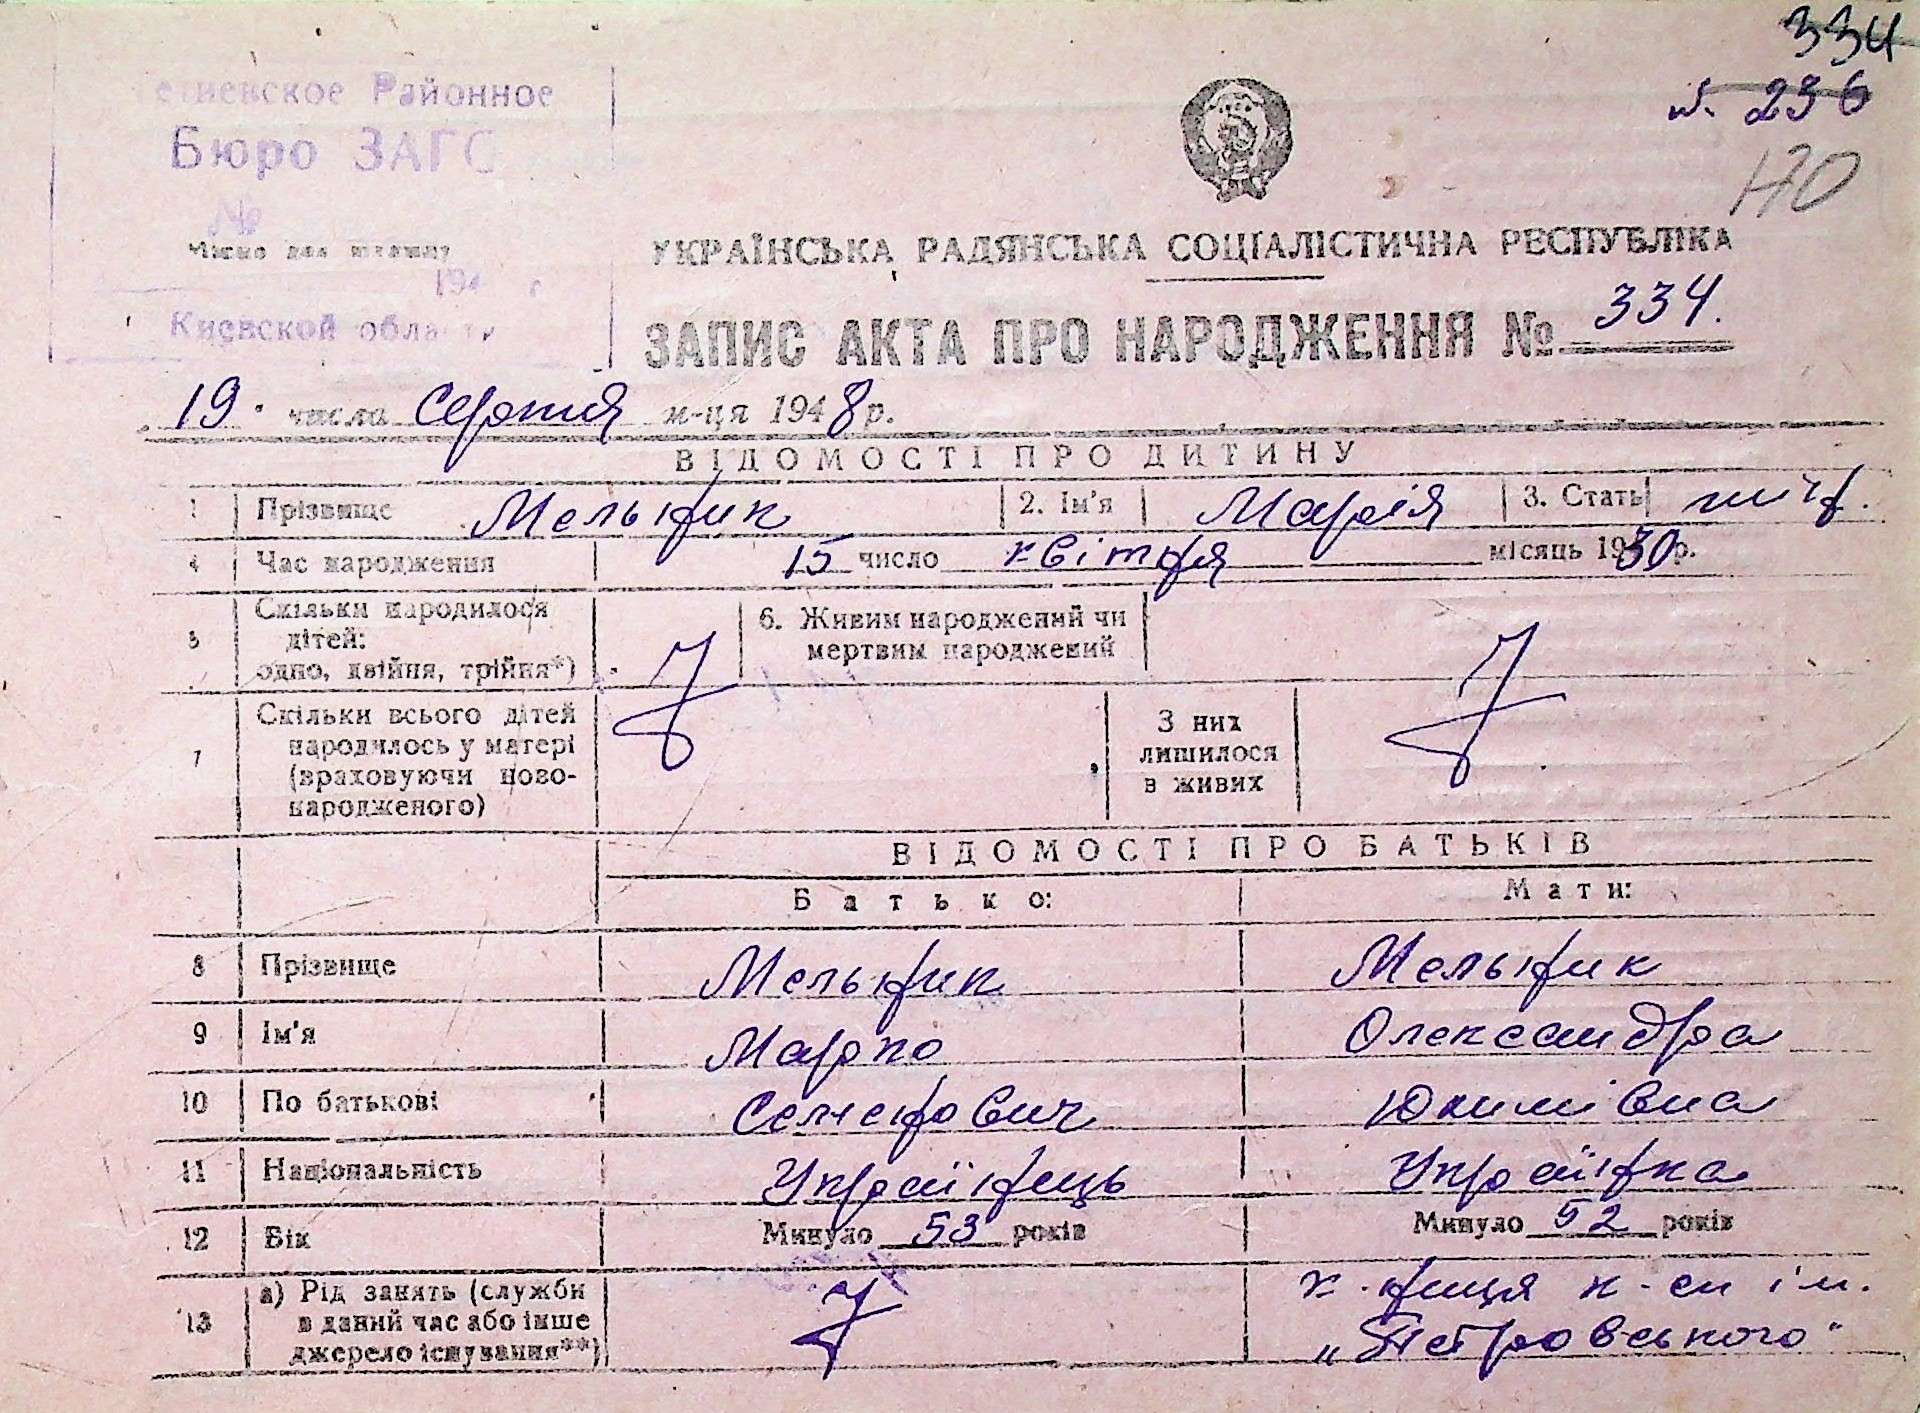 334
№ 236
НО
Районное
Бюро ЗАГС
№
Місце для штампу
194 г
Киевской области
УКРАЇНСЬКА РАДЯНСЬКА СОЦІАЛІСТИЧНА РЕСПУБЛІКА
ЗАПИС АКТА ПРО НАРОДЖЕННЯ № 334.
19. числа Серпня м-ця 1948 р.
ВІДОМОСТІ ПРО ДИТИНУ
1 Прізвище Мельник 2. Ім'я Марія 3. Стать жіч.
4 Час народження 15 число квітня місяць 1930 р.
5 Скільки народилося дітей: одно, двійня, трійня*) 6. Живим народжений чи мертвим народжений
7 Скільки всього дітей народилось у матері (враховуючи ново-народженого) З них лишилося в живих
ВІДОМОСТІ ПРО БАТЬКІВ
Батько: Мати:
8 Прізвище Мельник Мельник
9 Ім'я Марко Олександра
10 По батькові Юхимівна
11 Національність Українець Українка
12 Вік Минуло 53 років Минуло 52 років
13 а) Рід занять (служби в даний час або інше джерело існування**) к-ниця к-сп ім. „Петровського"